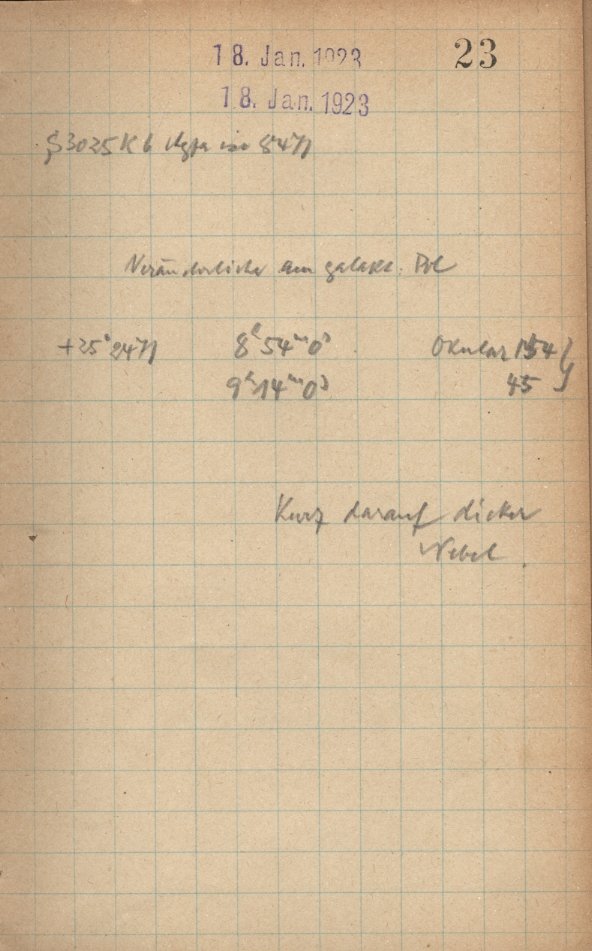 18. Jan. 1923 23
18. Jan. 1923
3025 Kb Agfa iso
Veränderliche am galakt. Pol
8ʰ54ᵐ0ˢ Okular
9ʰ14ᵐ0ˢ 45
Kurz darauf dicker
Nebel